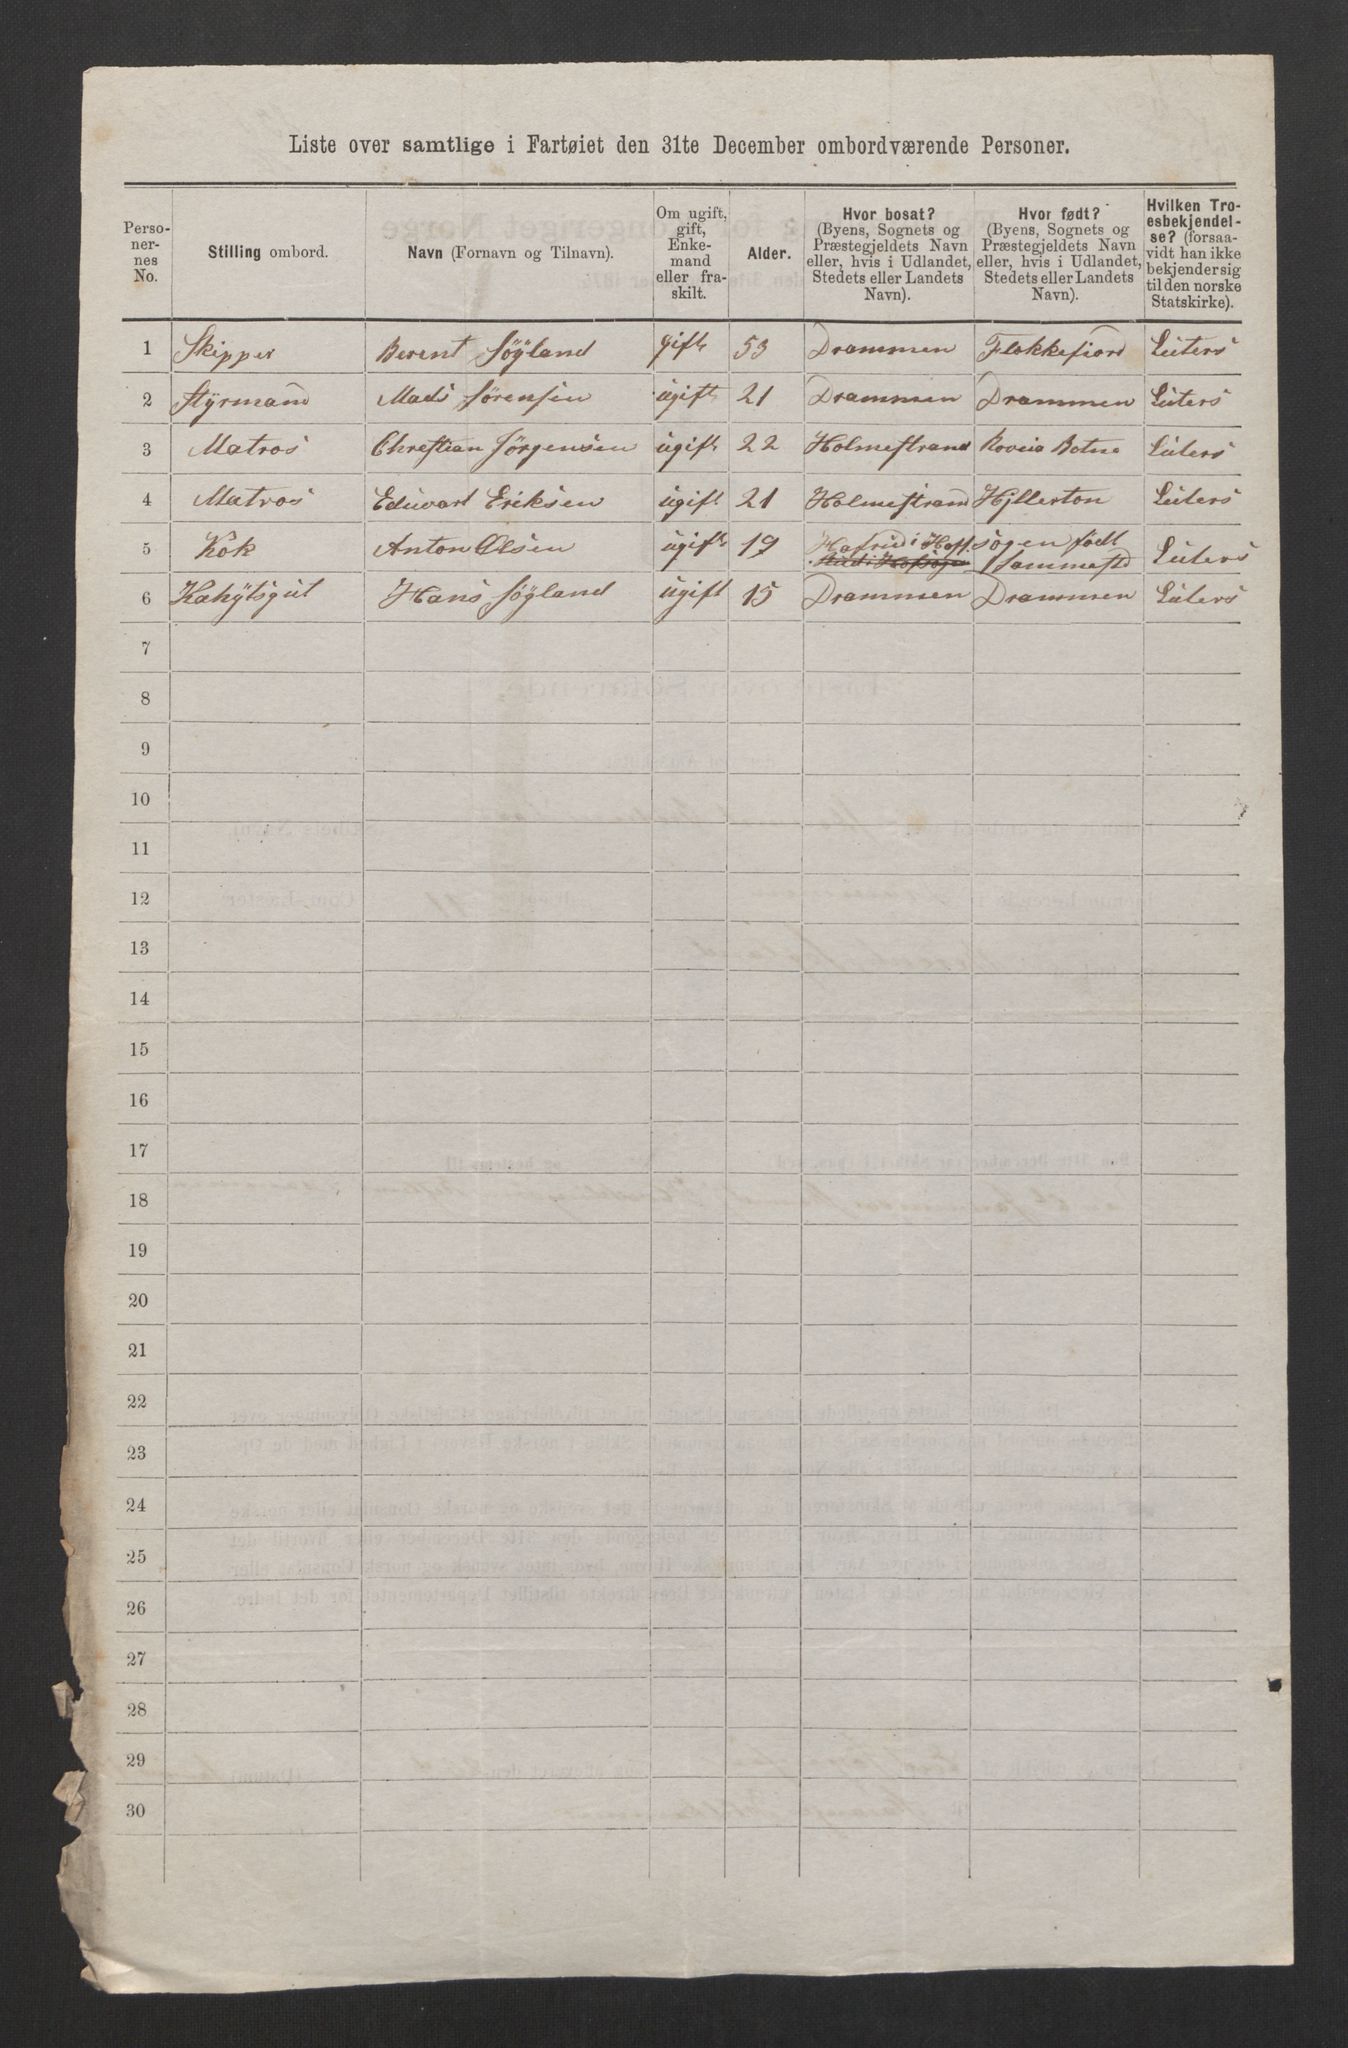 Liste over samtlige i Fartøiet den 31te December ombordværende Personer.
Perso-
ner-
nes
No.
Stilling ombord.
Navn (Fornavn og Tilnavn).
Om ugift,
gift,
Enke-
mand
eller fra-
skilt.
Alder.
Hvor bosat?
(Byens, Sognets og
Præstegjeldets Navn
eller, hvis i Udlandet,
Stedets eller Landets
Navn).
Hvor født?
(Byens, Sognets og
Præstegjeldets Navn
eller, hvis i Udlandet,
Stedets eller Landets
Navn).
Hvilken Tro-
esbekjendel-
se? (forsaa-
vidt han ikke
bekjender sig
til den norske
Statskirke).
1 Skipper Berent Søyland gift 53 Drammen Flekkefiord Luters
2 Styrmand Mads Sørensen ugift 21 Drammen Drammen Luters
3 Matros Christian Jørgensen ugift 22 Holmestrand Botne Luters
4 Matros Eduvart Eriksen ugift 21 Holmestrand Hillerton Luters
5 Kok Anton Olsen ugift 19 i Hoff søgen født Luters
sammested
6 Kahytsgut Hans Søyland ugift 15 Drammen Drammen Luters
7
8
9
10
11
12
13
14
15
16
17
18
19
20
21
22
23
24
25
26
27
28
29
30